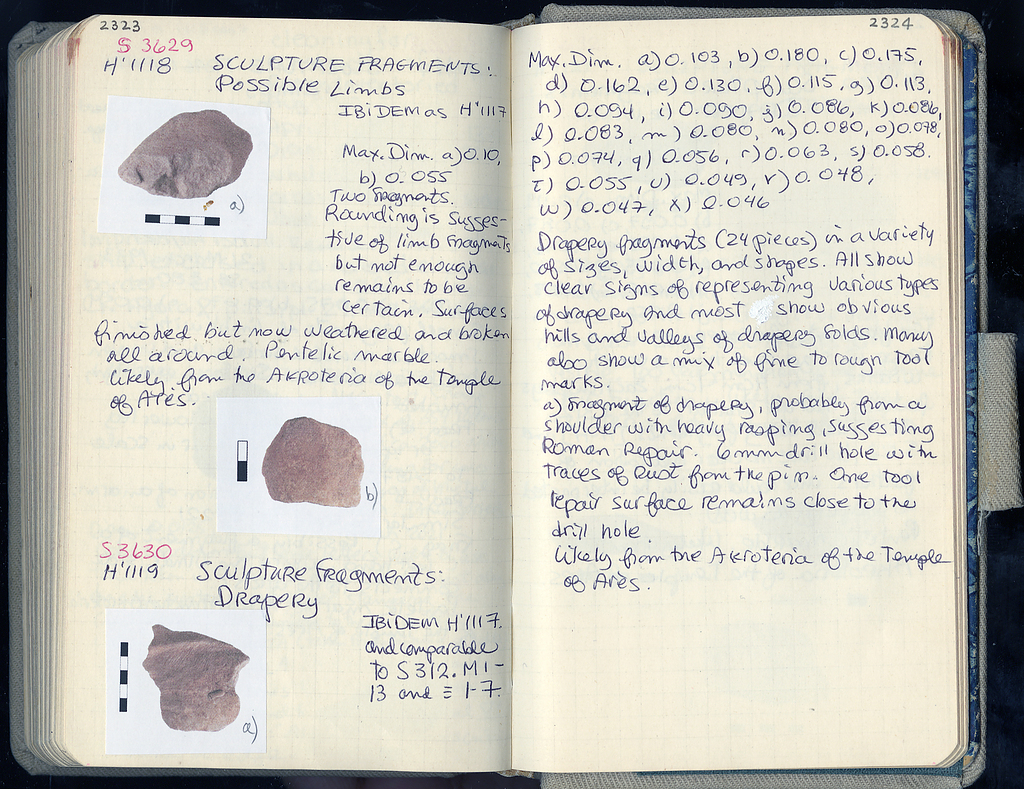 2323
S 3629
H'1118 SCULPTURE FRAGMENTS:
Possible Limbs
IBIDEM as H'1117
Max. Dim. a) 0.10,
b) 0.055
Two fragments.
Rounding is sugges-
tive of limb fragments
but not enough
remains to be
certain. Surfaces
finished but now weathered and broken
all around. Pentelic marble.
Likely from the Akroteria of the Temple
of Ares.
a)
b)
S 3630
H'1119 Sculpture Fragments:
Drapery
IBIDEM H'1117.
and comparable
to S 312. M 1-
13 and Ξ 1-7.
a)
2324
Max. Dim. a) 0.103, b) 0.180, c) 0.175,
d) 0.162, e) 0.130, f) 0.115, g) 0.113,
h) 0.094, i) 0.090, j) 0.086, k) 0.086,
l) 0.083, m) 0.080, n) 0.080, o) 0.078,
p) 0.074, q) 0.056, r) 0.063, s) 0.058.
t) 0.055, u) 0.049, v) 0.048,
w) 0.047, x) 0.046
Drapery fragments (24 pieces) in a variety
of sizes, width, and shapes. All show
clear signs of representing various types
of drapery and most show obvious
hills and valleys of drapery folds. Many
also show a mix of fine to rough tool
marks.
a) Fragment of drapery, probably from a
shoulder with heavy rasping, suggesting
Roman Repair. 6mm drill hole with
traces of Rust from the pin. One tool
repair surface remains close to the
drill hole.
Likely from the Akroteria of the Temple
of Ares.